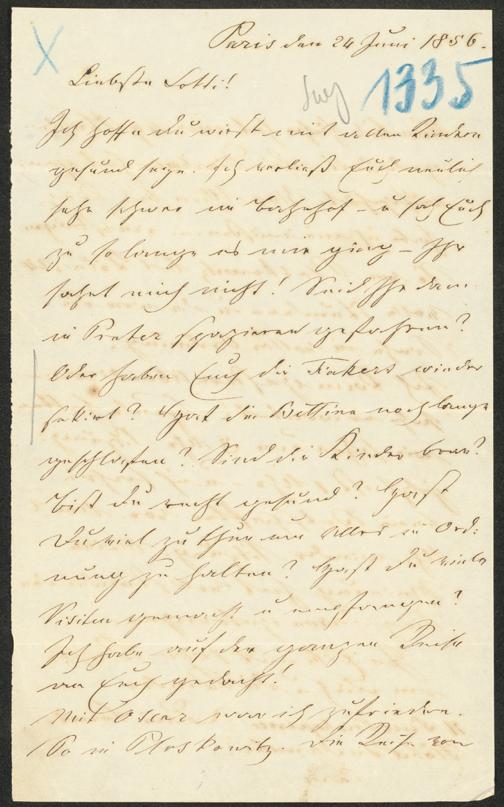 Paris den 24 Juni 1856.
1335
Liebste Lotti!
Ich hoffe du wirst mit allen Kindern
gesund seyn. Ich verließ Euch neulich
sehr schwer im Bahnhof – u sah Euch
zu so lange es mir ging – Ihr
sahet mich nicht! Seid Ihr dann
in Prater spazieren gefahren?
Oder haben Euch die Fiakers wieder
sekirt? Hat die Bettina noch lange
geschlafen? Sind die Kinder brav?
Bist du recht gesund? Hast
Du viel zu thun um Alles in Ord-
nung zu halten? Hast du viele
Visiten gemacht u empfangen?
Ich habe auf der ganzen Reise
an Euch gedacht!
Mit Oscar war ich zufrieden.
So in Ploskowitz. Die Reise von